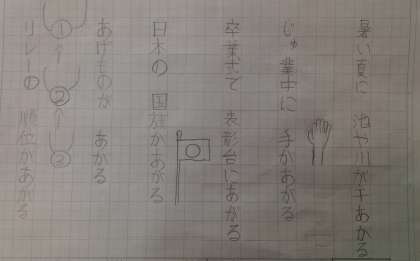 暑い夏に 池や川が干あがる
じゅ業中に 手があがる
卒業式で 表彰台にあがる
日本の 国旗があがる
あげものが あがる
① ② ②
リレーの 順位があがる